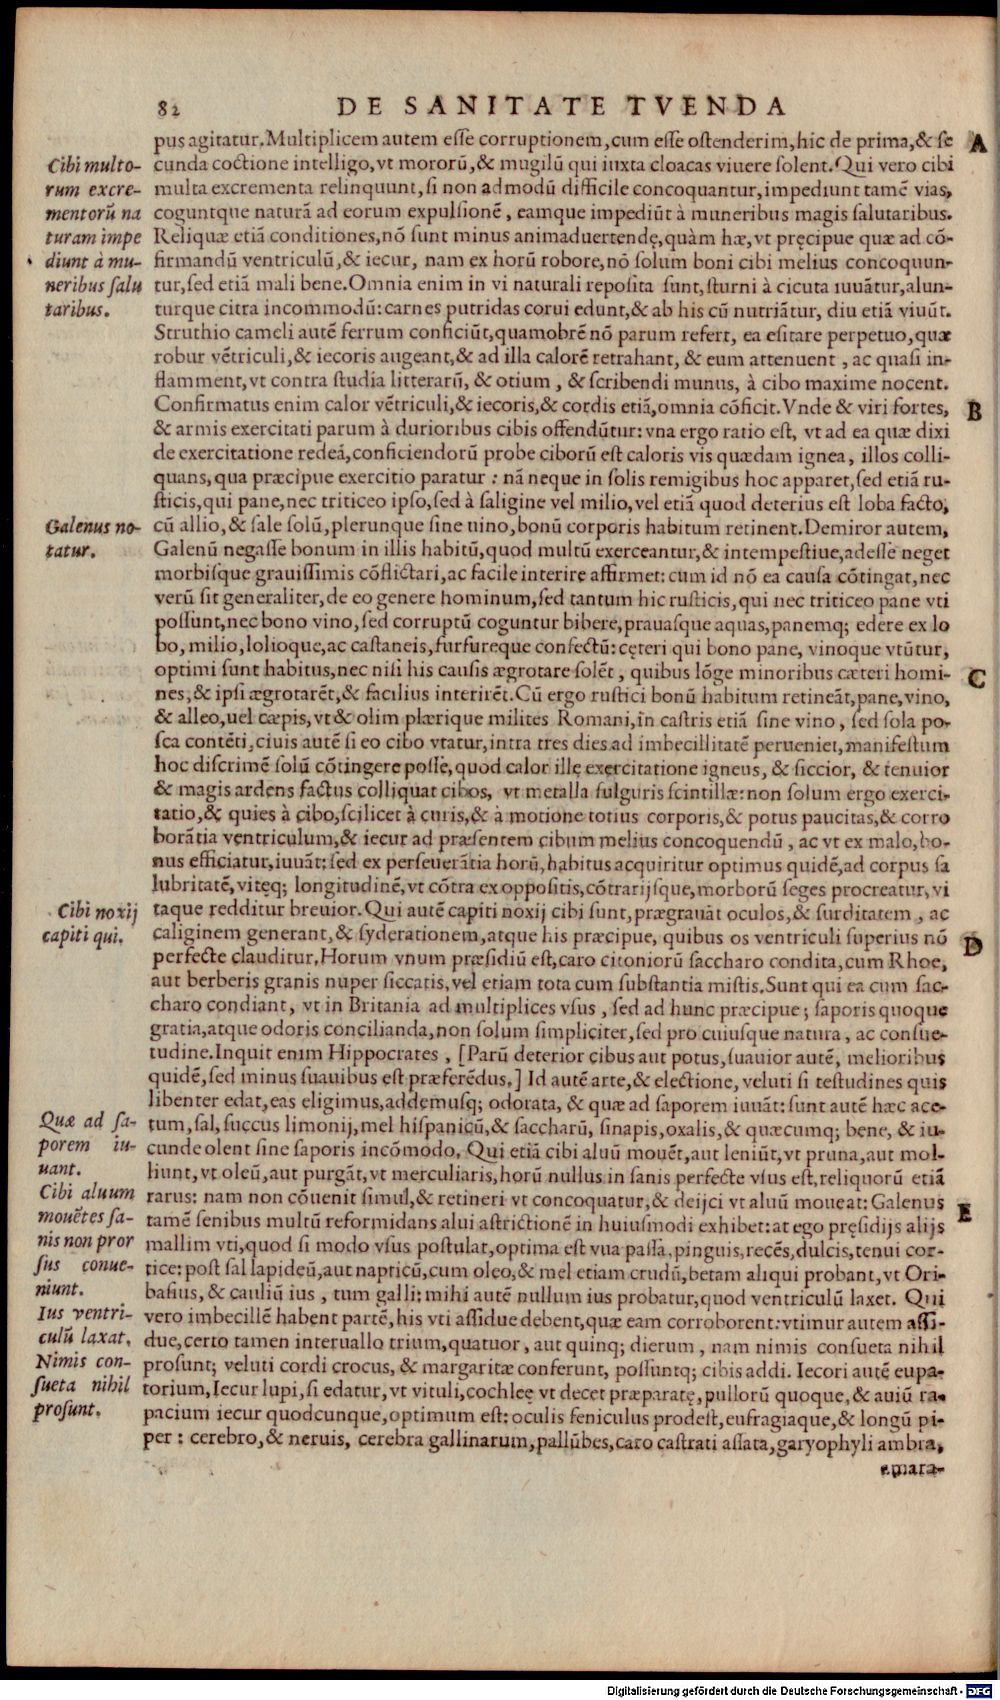 82 DE SANITATE TVENDA
pus agitatur. Multiplicem autem esse corruptionem, cum esse ostenderim, hic de prima, & se
cunda coctione intelligo, vt mororū, & mugilū qui iuxta cloacas viuere solent. Qui vero cibi
multa excrementa relinquunt, si non admodū difficile concoquantur, impediunt tamē vias,
coguntque naturā ad eorum expulsionē, eamque impediūt à muneribus magis salutaribus.
Reliquæ etiā conditiones, nō sunt minus animaduertendę, quàm hæ, vt pręcipue quæ ad cō-
firmandū ventriculū, & iecur, nam ex horū robore, nō solum boni cibi melius concoquun-
tur, sed etiā mali bene. Omnia enim in vi naturali reposita sunt, sturni à cicuta iuuātur, alun-
turque citra incommodū: carnes putridas corui edunt, & ab his cū nutriātur, diu etiā viuūt.
Struthio cameli autē ferrum conficiūt, quamobrē nō parum refert, ea esitare perpetuo, quæ
robur vētriculi, & iecoris augeant, & ad illa calorē retrahant, & eum attenuent, ac quasi in-
flamment, vt contra studia litterarū, & otium, & scribendi munus, à cibo maxime nocent.
Confirmatus enim calor vētriculi, & iecoris, & cordis etiā, omnia cōficit. Vnde & viri fortes,
& armis exercitati parum à durioribus cibis offendūtur: vna ergo ratio est, vt ad ea quæ dixi
de exercitatione redeā, conficiendorū probe ciborū est caloris vis quædam ignea, illos colli-
quans, qua præcipue exercitio paratur: nā neque in solis remigibus hoc apparet, sed etiā ru-
sticis, qui pane, nec triticeo ipso, sed à saligine vel milio, vel etiā quod deterius est loba facto,
cū allio, & sale solū, plerunque sine uino, bonū corporis habitum retinent. Demiror autem,
Galenū negasse bonum in illis habitū, quod multū exerceantur, & intempestiue, adesse neget
morbisque grauissimis cōflictari, ac facile interire affirmet: cum id nō ea causa cōtingat, nec
verū sit generaliter, de eo genere hominum, sed tantum hic rusticis, qui nec triticeo pane vti
possunt, nec bono vino, sed corruptū coguntur bibere, prauasque aquas, panemq; edere ex lo
bo, milio, lolioque, ac castaneis, furfureque confectū: cęteri qui bono pane, vinoque vtūtur,
optimi sunt habitus, nec nisi his causis ægrotare solēt, quibus lōge minoribus cæteri homi-
nes, & ipsi ægrotarēt, & facilius interirēt. Cū ergo rustici bonū habitum retineāt, pane, vino,
& alleo, uel cæpis, vt & olim plærique milites Romani, in castris etiā sine vino, sed sola po-
sca contēti, ciuis autē si eo cibo vtatur, intra tres dies ad imbecillitatē perueniet, manifestum
hoc discrimē solū cōtingere posse, quod calor ille exercitatione igneus, & siccior, & tenuior
& magis ardens factus colliquat cibos, vt metalla fulguris scintillæ: non solum ergo exerci-
tatio, & quies à cibo, scilicet à curis, & à motione totius corporis, & potus paucitas, & corro
borātia ventriculum, & iecur ad præsentem cibum melius concoquendū, ac vt ex malo, bo-
nus efficiatur, iuuāt: sed ex perseuerātia horū, habitus acquiritur optimus quidē, ad corpus sa
lubritatē, vitęq; longitudinē, vt cōtra ex oppositis, cōtrarijsque, morborū seges procreatur, vi
taque redditur breuior. Qui autē capiti noxij cibi sunt, prægrauāt oculos, & surditatem, ac
caliginem generant, & syderationem, atque his præcipue, quibus os ventriculi superius nō
perfecte clauditur. Horum vnum præsidiū est, caro citoniorū saccharo condita, cum Rhoe,
aut berberis granis nuper siccatis, vel etiam tota cum substantia mistis. Sunt qui ea cum sac-
charo condiant, vt in Britania ad multiplices vsus, sed ad hunc præcipue; saporis quoque
gratia, atque odoris concilianda, non solum simpliciter, sed pro cuiusque natura, ac consue-
tudine. Inquit enim Hippocrates, [Parū deterior cibus aut potus, suauior autē, melioribus
quidē, sed minus suauibus est præferēdus.] Id autē arte, & electione, veluti si testudines quis
libenter edat, eas eligimus, addemusq; odorata, & quæ ad saporem iuuāt: sunt autē hæc ace-
tum, sal, succus limonij, mel hispanicū, & saccharū, sinapis, oxalis, & quæcumq; bene, & iu-
cunde olent sine saporis incōmodo. Qui etiā cibi aluū mouēt, aut leniūt, vt pruna, aut mol-
liunt, vt oleū, aut purgāt, vt merculiaris, horū nullus in sanis perfecte vsus est, reliquorū etiā
rarus: nam non cōuenit simul, & retineri vt concoquatur, & deijci vt aluū moueat: Galenus
tamē senibus multū reformidans alui astrictionē in huiusmodi exhibet: at ego pręsidijs alijs
mallim vti, quod si modo vsus postulat, optima est vua passa, pinguis, recēs, dulcis, tenui cor-
tice: post sal lapideū, aut napticū, cum oleo, & mel etiam crudū, betam aliqui probant, vt Ori-
basius, & cauliū ius, tum galli: mihi autē nullum ius probatur, quod ventriculū laxet. Qui
vero imbecillē habent partē, his vti assidue debent, quæ eam corroborent: vtimur autem assi-
due, certo tamen interuallo trium, quatuor, aut quinq; dierum, nam nimis consueta nihil
prosunt; veluti cordi crocus, & margaritæ conferunt, possuntq; cibis addi. Iecori autē eupa-
torium, Iecur lupi, si edatur, vt vituli, cochleę vt decet præparatę, pullorū quoque, & auiū ra-
pacium iecur quodcunque, optimum est: oculis feniculus prodest, eufragiaque, & longū pi-
per: cerebro, & neruis, cerebra gallinarum, pallūbes, caro castrati assata, garyophyli ambra,
emara-
Cibi multo-
rum excre-
mentorū na
turam impe
diunt à mu-
neribus salu
taribus.
Galenus no-
tatur.
Cibi noxij
capiti qui.
Quæ ad sa-
porem iu-
uant.
Cibi aluum
mouētes sa-
nis non pror
sus conue-
niunt.
Ius ventri-
culū laxat.
Nimis con-
sueta nihil
prosunt.
A
B
C
D
E
Digitalisierung gefördert durch die Deutsche Forschungsgemeinschaft - DFG